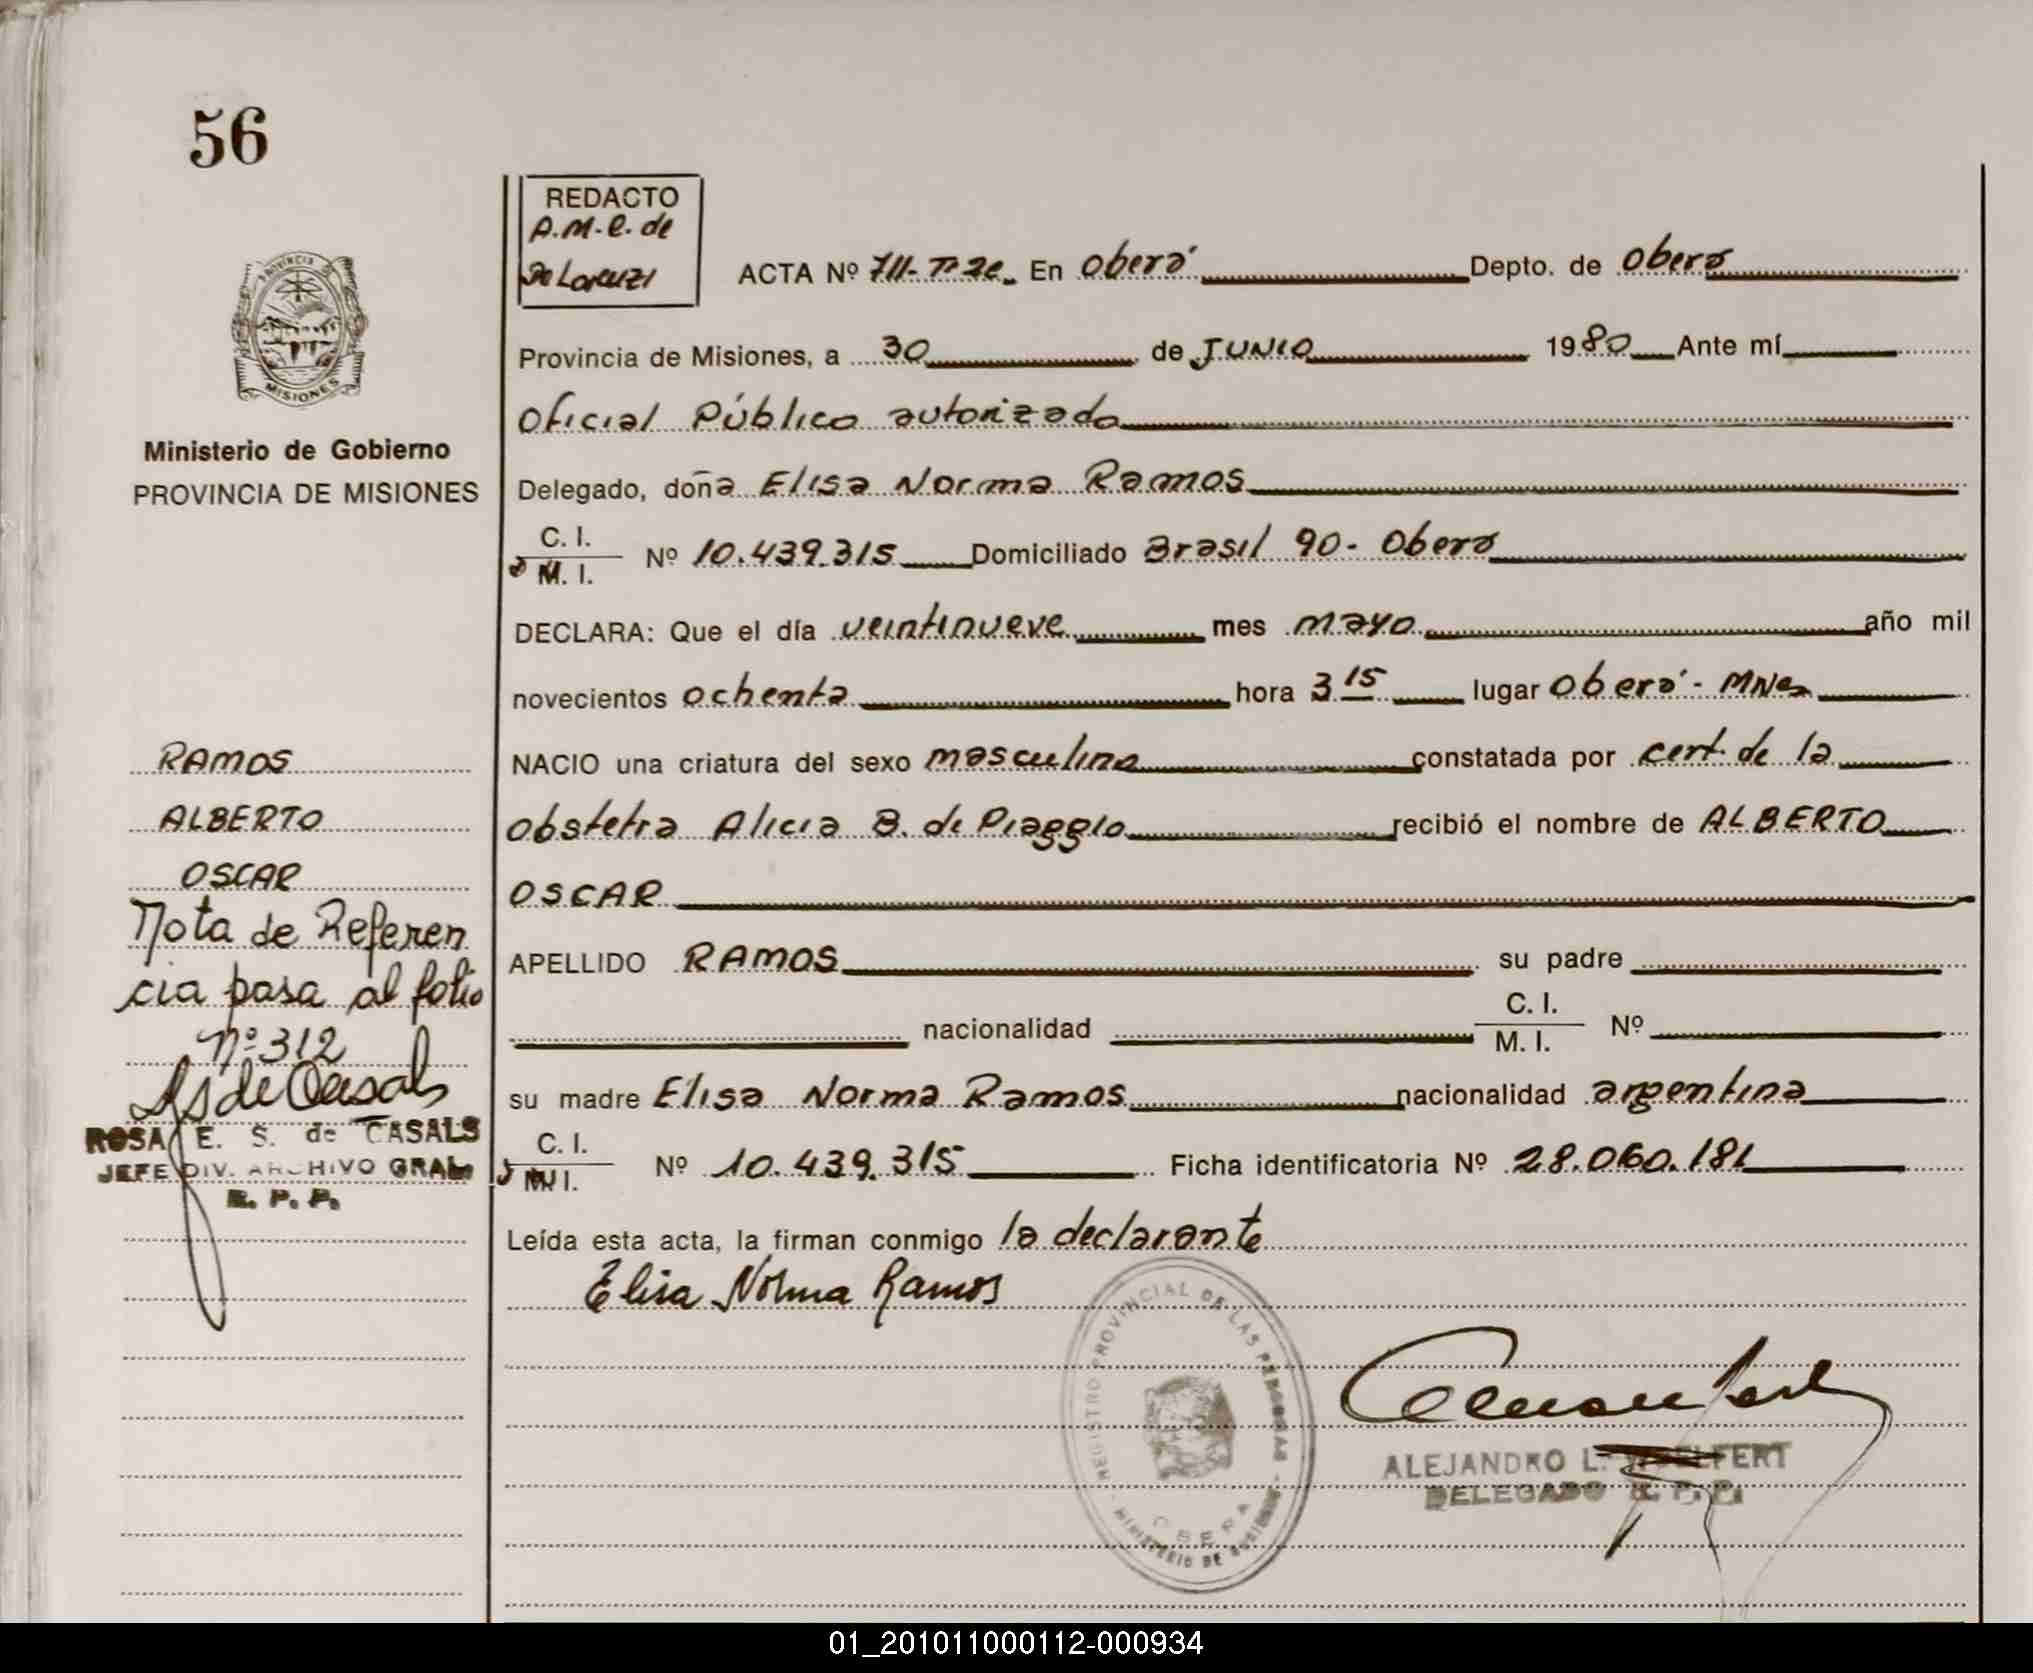 56
REDACTO
A.M.C. de
De Lorenzi
ACTA Nº 711-Tº2º En Oberá Depto. de Oberá
Provincia de Misiones, a 30 de JUNIO 1980 Ante mí
Oficial Público autorizado
Delegado, doña Elisa Norma Ramos
C. I.
M. I. Nº 10.439.315 Domiciliado Brasil 90- Oberá
DECLARA: Que el día veintinueve mes mayo año mil
novecientos ochenta hora 3 15 lugar Oberá - Mnes
NACIO una criatura del sexo masculino constatada por cert. de la
obstetra Alicia B. de Piaggio recibió el nombre de ALBERTO
OSCAR
APELLIDO RAMOS su padre
nacionalidad C. I.
M. I. Nº
su madre Elisa Norma Ramos nacionalidad argentina
C. I.
M. I. Nº 10.439.315 Ficha identificatoria Nº 28.060.181
Leída esta acta, la firman conmigo la declarante
Elisa Norma Ramos
REGISTRO PROVINCIAL DE LAS PERSONAS
OBERA
MINISTERIO DE GOBIERNO
ALEJANDRO L. WOELFERT
DELEGADO R. P. P.
PROVINCIA DE
MISIONES
Ministerio de Gobierno
PROVINCIA DE MISIONES
RAMOS
ALBERTO
OSCAR
Nota de Referen
cia pasa al folio
Nº 312
RS de Casals
ROSA E. S. de CASALS
JEFE DIV. ARCHIVO GRAL.
R. P. P.
01_201011000112-000934